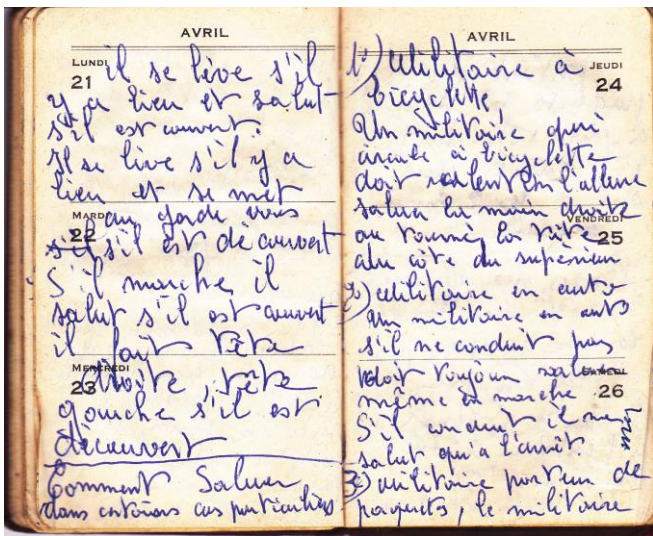 AVRIL
LUNDI
21
il se lève s'il
y a lieu et salut
s'il est couvert.
Il se lève s'il y a
lieu et se met
MARDI
22
au garde vous
s'il est découvert
S'il marche, il
salut s'il est couvert
il fait tête
MERCREDI
23
droite, tête
gauche s'il est
découvert
Comment Saluer
dans certains cas particuliers
AVRIL
JEUDI
24
1º) Militaire à
bicyclette
Un militaire qui
circule à bicyclette
doit ralentir l'allure
saluer la main droite
VENDREDI
25
ou tourner la tête
du côté du supérieur
2) Militaire en auto
Un militaire en auto
s'il ne conduit pas
SAMEDI
26
doit toujours saluer
même en marche
S'il conduit il ne
salut qu'a l'arrêt.
3º) militaire porteur de
paquets, le militaire